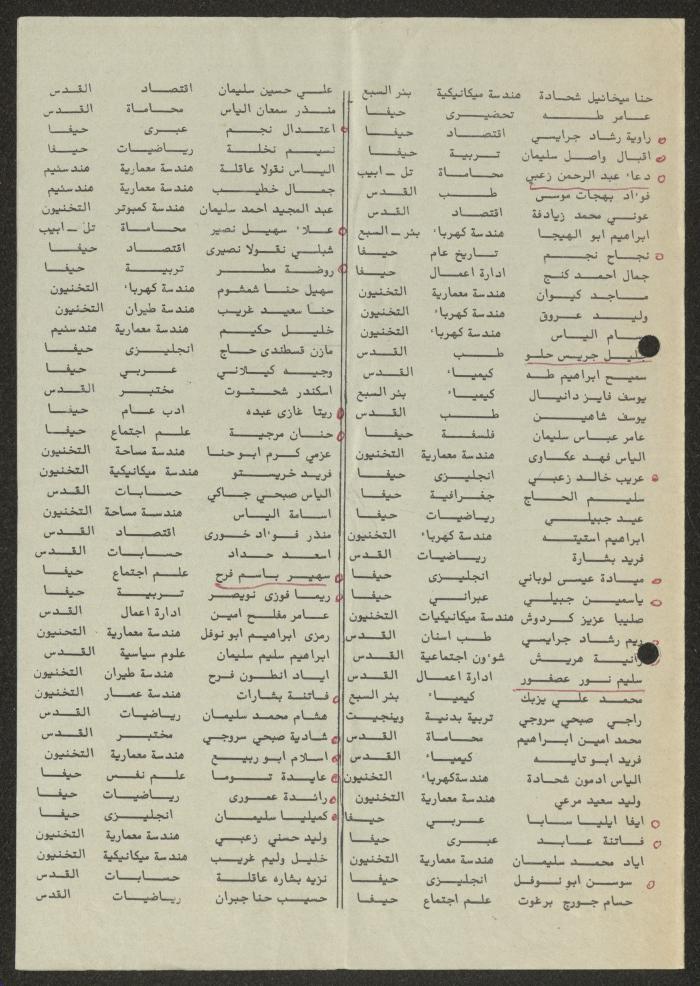 حنا ميخائيل شحادة هندسة ميكانيكية بئر السبع
عامر طه تحضيرى حيفا
راوية رشاد جرايسي اقتصاد حيفا
اقبال واصل سليمان تربية حيفا
دعاء عبد الرحمن زعبي محاماة تل ــ ابيب
فوءاد بهجات موسى طب القدس
عوني محمد زيادفة اقتصاد القدس
ابراهيم ابو الهيجا هندسة كهرباء بئر ــ السبع
نجاح نجم تاريخ عام حيفا
جمال احمد كنج ادارة اعمال حيفا
ماجد كيوان هندسة معمارية التخنيون
وليد عروق هندسة كهرباء التخنيون
سام الياس هندسة كهرباء التخنيون
خليل جريس حلو طب القدس
سميح ابراهيم طه كيمياء القدس
يوسف فايز دانيال كيمياء بئر السبع
يوسف شاهين طب القدس
عامر عباس سليمان فلسفة حيفا
الياس فهد عكاوى هندسة معمارية التخنيون
عريب خالد زعبي انجليزى حيفا
سليم الحاج جغرافية حيفا
عيد جبيلي رياضيات حيفا
ابراهيم استيته هندسة كهرباء التخنيون
فريد بشارة رياضيات القدس
ميادة عيسى لوباني انجليزى حيفا
ياسمين جبيلي عبراني حيفا
صليبا عزيز كردوش هندسة ميكانيكيات التخنيون
ريم رشاد جرايسي طب اسنان القدس
رانية هريش شوءون اجتماعية القدس
سليم نور عصفور ادارة اعمال القدس
محمد علي يزبك كيمياء بئر السبع
راجي صبحي سروجي تربية بدنية وينجيت
محمد امين ابراهيم محاماة القدس
فريد ابو تايه كيمياء القدس
الياس ادمون شحادة هندسة كهرباء التخنيون
وليد سعيد مرعي هندسة معمارية التخنيون
ايفا ايليا سابا عربي حيفا
فاتنة عابد عبرى حيفا
اياد محمد سليمان هندسة معمارية التخنيون
سوسن ابو نوفل انجليزى حيفا
حسام جورج برغوت علم اجتماع حيفا
علي حسين سليمان اقتصاد القدس
منذر سمعان الياس محاماة القدس
اعتدال نجم عبرى حيفا
نسيم نخلة رياضيات حيفا
الياس نقولا عاقلة هندسة معمارية هندسئيم
جمال خطيب هندسة معمارية هندسئيم
عبد المجيد احمد سليمان هندسة كمبوتر التخنيون
علاء سهيل نصير محاماة تل ــ ابيب
شبلي نقولا نصيرى اقتصاد حيفا
روضة مطر تربية حيفا
سهيل حنا شمشوم هندسة كهرباء التخنيون
حنا سعيد غريب هندسة طيران التخنيون
خليل حكيم هندسة معمارية هندسئيم
مازن قسطندى حاج انجليزى حيفا
وجيه كيلاني عربي حيفا
اسكندر شحتوت مختبر القدس
ريتا غازى عبده ادب عام حيفا
حنان مرجية علم اجتماع حيفا
عزمي كرم ابو حنا هندسة مساحة التخنيون
فريد خريستو هندسة ميكانيكية التخنيون
الياس صبحي جاكي حسابات القدس
اسامة الياس هندسة مساحة التخنيون
منذر فوءاد خورى اقتصاد القدس
اسعد حداد حسابات القدس
سهير باسم فرح علم اجتماع حيفا
ريما فوزى نويصر تربية حيفا
عامر مفلح امين ادارة اعمال القدس
رمزى ابراهيم ابو نوفل هندسة معمارية التخنيون
ابراهيم سليم سليمان علوم سياسية القدس
اياد انطون فرح هندسة طيران التخنيون
فاتنة بشارات هندسة عمار التخنيون
هشام محمد سليمان رياضيات القدس
شادية صبحي سروجي مختبر القدس
اسلام ابو ربيع هندسة معمارية التخنيون
عايدة توما علم نفس حيفا
رائدة عمورى رياضيات حيفا
كميليا سليمان انجليزى حيفا
وليد حسني زعبي هندسة معمارية التخنيون
خليل وليم غريب هندسة ميكانيكية التخنيون
نزيه بشاره عاقلة حسابات القدس
حسيب حنا جبران رياضيات القدس